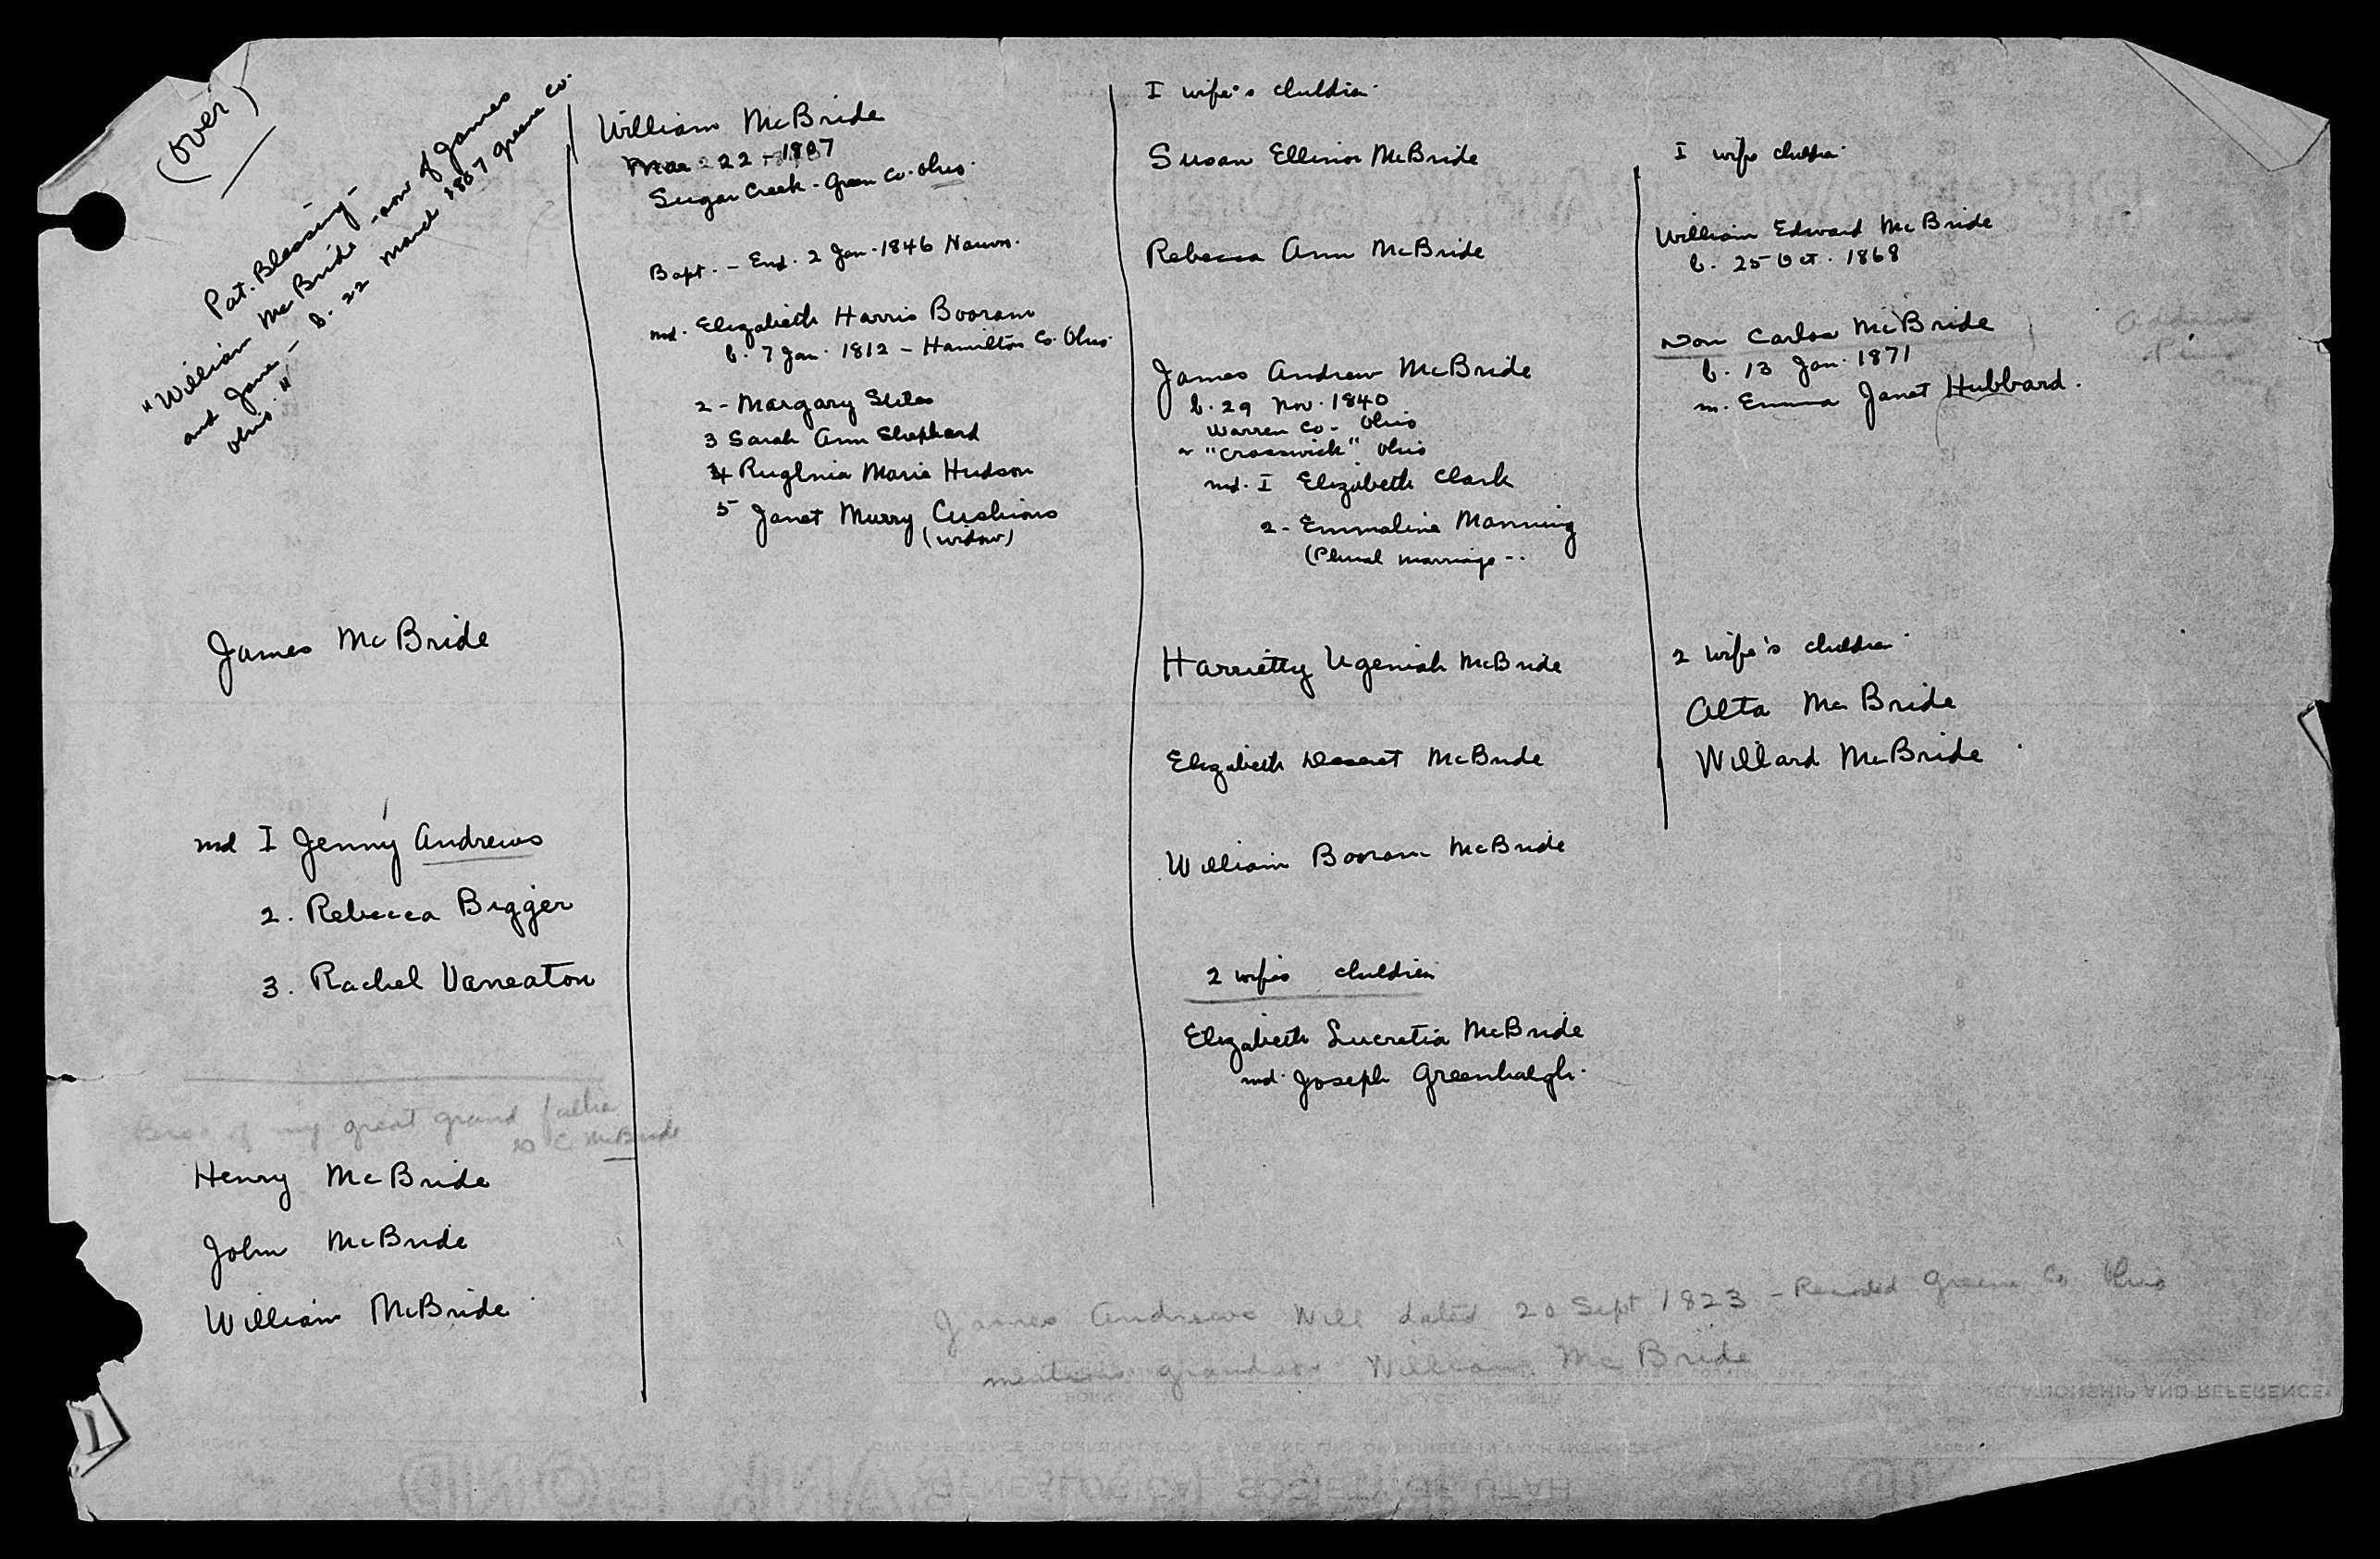 (over)
Pat. Blessing -
"William McBride - son of James
and Jane - b. 22 March 1807 Greene Co.
Ohio."
James McBride
md I Jenny Andrews
2. Rebecca Bigger
3. Rachel Vaneaton
Bro of my great grand father
D C McBride
Henry McBride
John McBride
William McBride
William McBride
Mar 22 - 1807
Sugar Creek - Green Co. Ohio.
Bapt. - End. 2 Jan. 1846 Nauvo.
md. Elizabeth Harris Booram
b. 7 Jan. 1812 - Hamilton Co. Ohio.
2 - Margary Stiles
3 Sarah Ann Shephard
4 Ruglnia Maria Hudson
5 Janet Murry Cushions
(widow)
I wife's children
Susan Ellinor McBride
Rebecca Ann McBride
James Andrew McBride
b. 29 Nov. 1840
Warren Co - Ohio
or "Crosswick" Ohio
md. I Elizabeth Clark
2 - Emmaline Manning
(Plural marriage - -
Harrietty Ugeniah McBride
Elizabeth Deseret McBride
William Booram McBride
2 wifes children
Elizabeth Lucretia McBride
md. Joseph Greenhalgh.
I wifs children
William Edward McBride
b. 25 Oct. 1868
Don Carlos McBride
b. 13 Jan. 1871
m. Emma Janet Hubbard.
Address
2 wife's children
Alta McBride
Willard McBride
James Andrews Will dated 20 Sept 1823 - Recorded Greene Co Ohio
mentions grandson William McBride
RELATIONSHIP AND REFERENCE
GENEALOGICAL SOCIETY OF UTAH